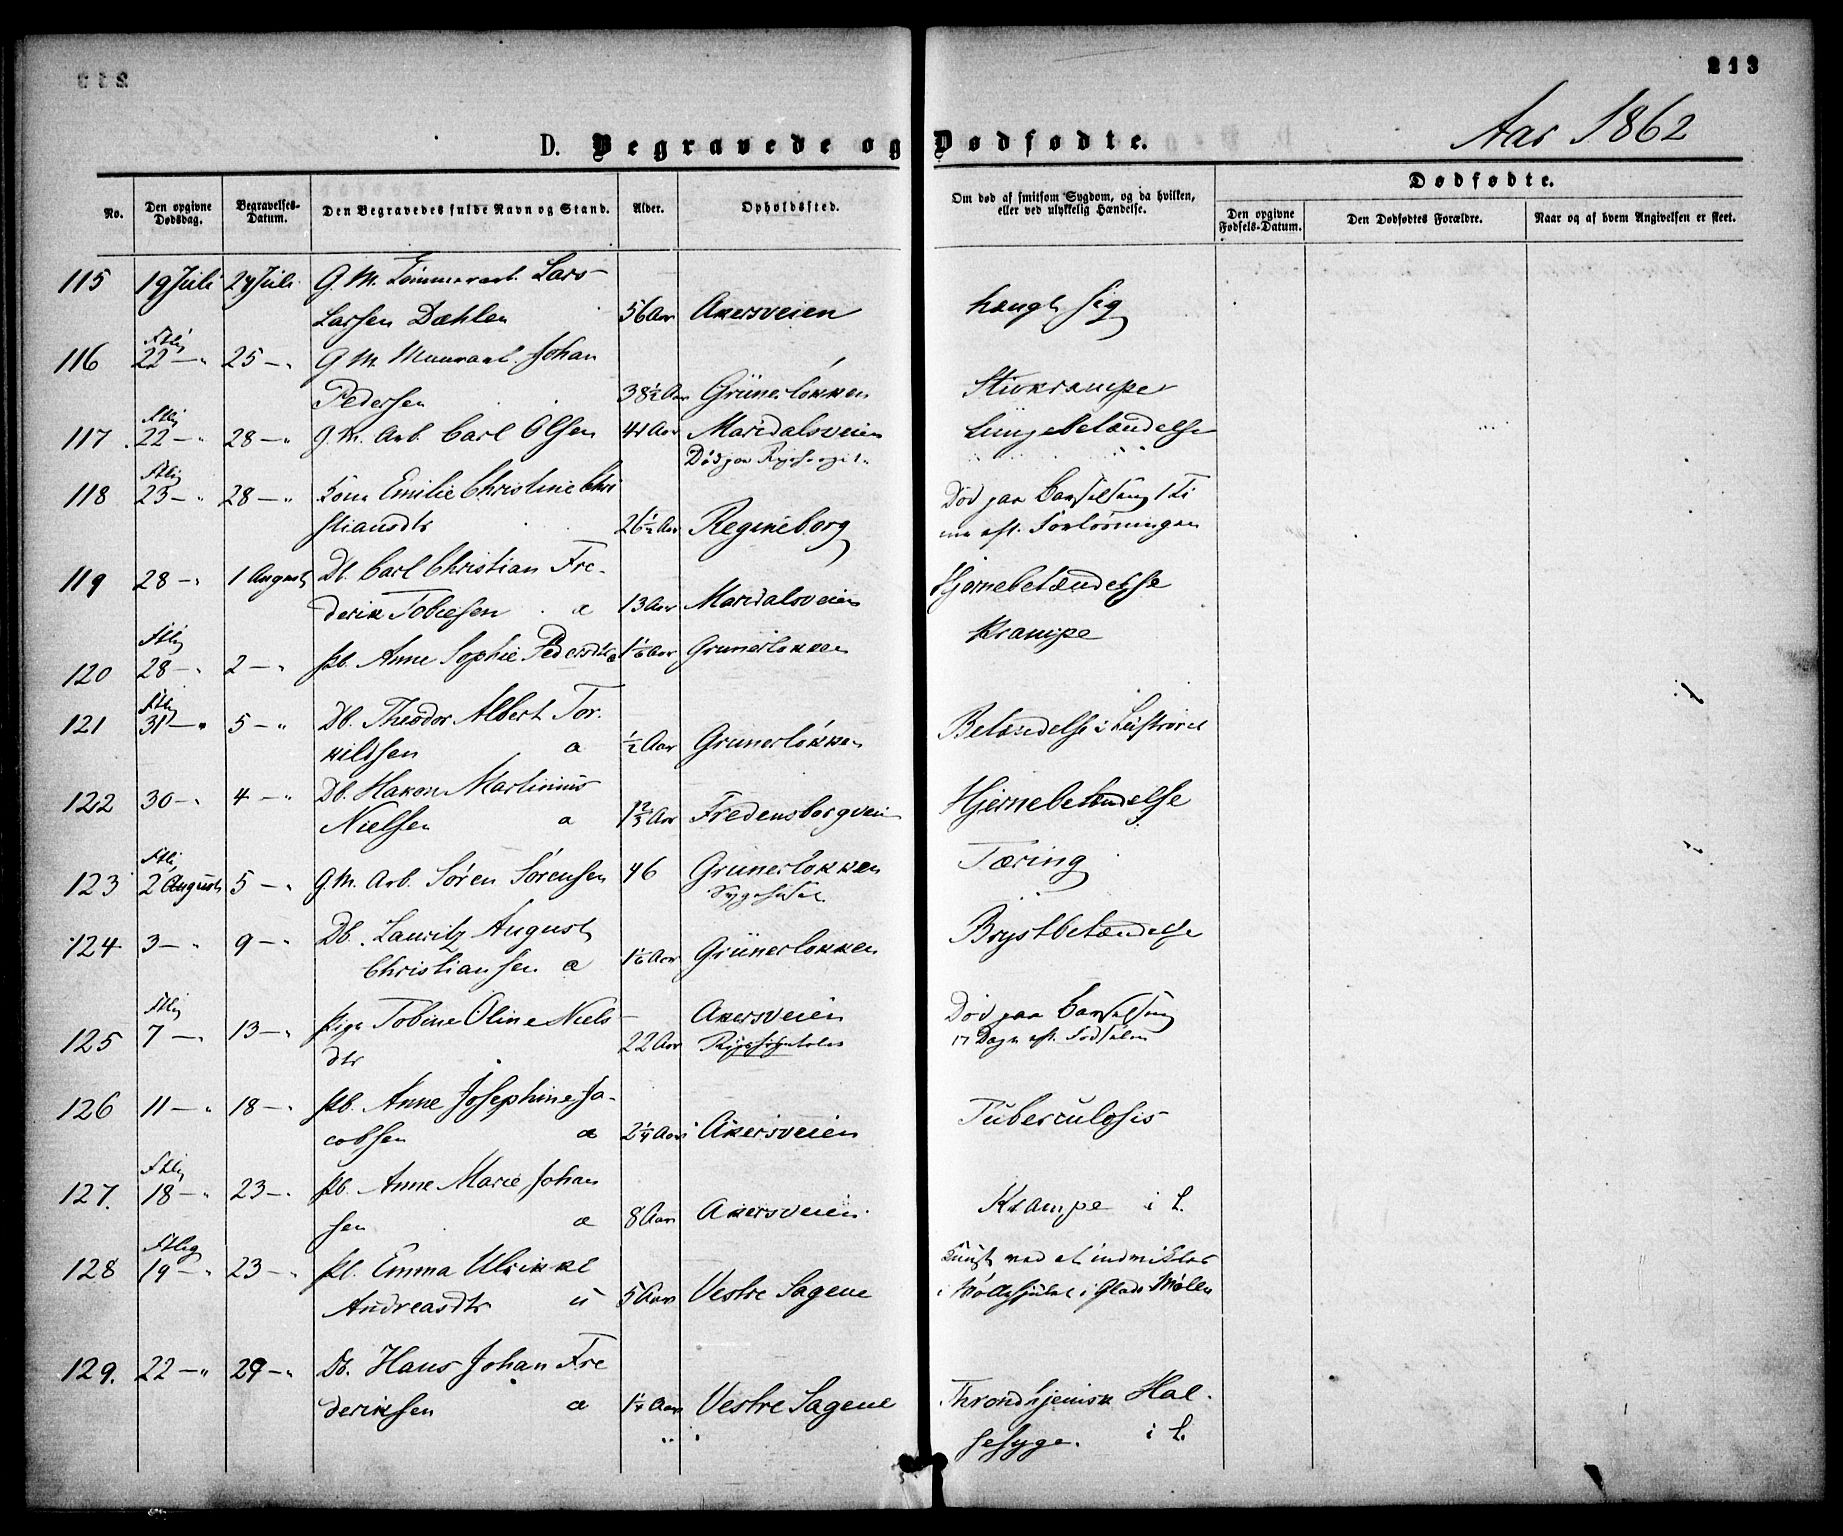 213
Aar 1862
D. Begravede og Dødfødte.
No.
Den opgivne Dødsdag.
Begravelses-Datum.
Den Begravedes fulde Navn og Stand.
Alder.
Opholdssted.
Om død af smitsom Sygdom, og da hvilken, eller ved ulykkelig Hændelse.
Dødfødte.
Den opgivne Fødsels-Datum.
Den Dødfødtes Forældre.
Naar og af hvem Angivelsen er skeet.
115 19 Juli 24 Juli G. M. Tømmerarb. Lars
Larsen Dæhlen 56 Aar Akersveien hængt sig
116 22 — " 25 — " G. M. Murarb. Johan
Pedersen 38½ Aar Grünerløkken Stivkrampe
117. 22 — " 28 — " G. M. Arb. Carl Olsen 41 Aar Maridalsveien Lungebetændelse
Død paa
118 23 — " 28 — " Kone Emilie Christine Chri
stiansdtr 26½ Aar Regineborg
Død paa Barselseng
eft. Forløsningen
119 28 — " 1 August Db. Carl Christian Fre-
derik Tobiesen a 13 Aar Maridalsveien Hjernebetændelse
120 28 — " 2 — " Pb. Anne Sophie Pedersdtr a 1 1/6 Aar Grünerløkken Krampe
121 31 — " 5 — " Db. Theodor Albert Tor-
kildsen a ½ Aar Grünerløkken Betændelse i Luftrøret
122 30 — " 4 — " Db. Hakon Martinius
Nielsen a 1 2/3 Aar Fredensborgveien Hjernebetændelse
123 2 August 5 — " G. M. Arb. Søren Sørensen 46 Grünerløkken Tæring
124 3 — " 9 — " Db. Lauritz August
Christiansen a 1 1/6 Aar Grünerløkken Brystbetændelse
125 7 — " 13 — " Pige Tobine Oline Niels-
dtr 22 Aar Akersveien
Død paa Barselseng
17 Dage eft. Fødselen
126 11 — " 18 — " Pb. Anne Josephine Ja-
cobsen a 2¼ Aar Akersveien Tuberculosis
127. 18 — " 23 — " Pb. Anne Marie Johan
sen a 8 Aar Akersveien Krampe i L.
128 19 — " 23 — " Pb. Emma Ulrikke
Andreasdtr u 5 Aar Vestre Sagene
i Møllehjulet i Glads Mølle
129. 22 — " 29 — " Db. Hans Johan Fre
deriksen a 1¼ Aar Vestre Sagene Throndhjemsk Hal-
sesyge. i L.